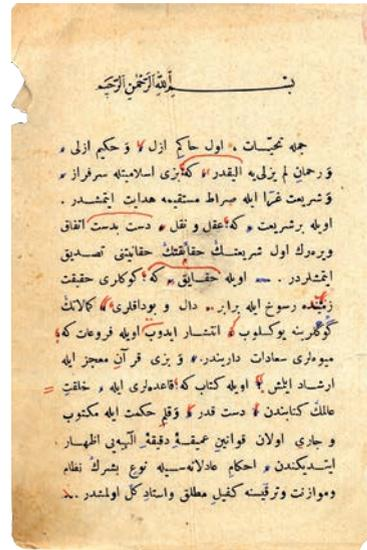 بسم الله الرحمن الرحيم
جمله تحيات ، اول حاكم ازل و حكيم ازلى ،
و رحمان لم يزلى يه اليقدر ، كه بزى اسلاميتله سرفراز ،
و شريعت غرا ايله صراط مستقيمه هدايت ايتمشدر .
اويله برشريعت ، كه عقل و نقل ، دست بدست اتفاق
ويره رك اول شريعتك حقايقنك حقانيتنى تصديق
ايتمشلردر . اويله حقايق ، كه كوكلرى حقيقت
زميننده رسوخ ايله برابر . دال و بوداقلرى كمالاتك
كوكلرينه يوكسلوب ، انتشار ايدوب اويله فروعات كه
ميوه لرى سعادات داريندر . و بزى قرآن معجز ايله
ارشاد ايلمش ، اويله كتاب كه قاعده لرى ايله ، خلقت
عالمك كتابندن ، دست قدر ، و قلم حكمت ايله مكتوب
و جارى اولان قوانين عميقۀ دقيقۀ الٓهيه يى اظهار .
ايتديكندن ، احكام عادلانه سيله نوع بشرك نظام
وموازنت وترقيسنه كفيل مطلق واستاد كل اولمشدر ..